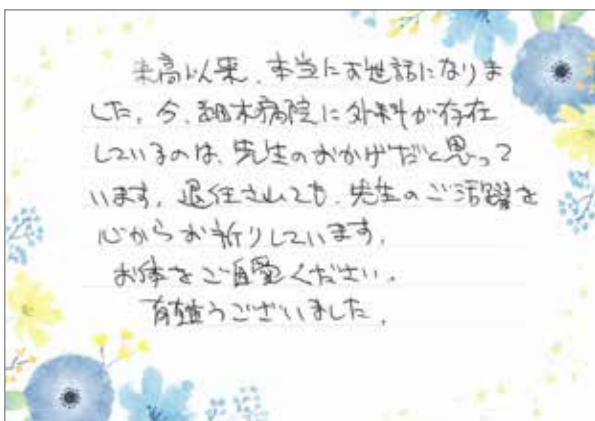 来高以来、本当にお世話になりま
した。今、細木病院に外科が存在
しているのは、先生のおかげだと思って
います。退任されても、先生のご活躍を
心からお祈りしています。
お体をご自愛ください。
有難うございました。